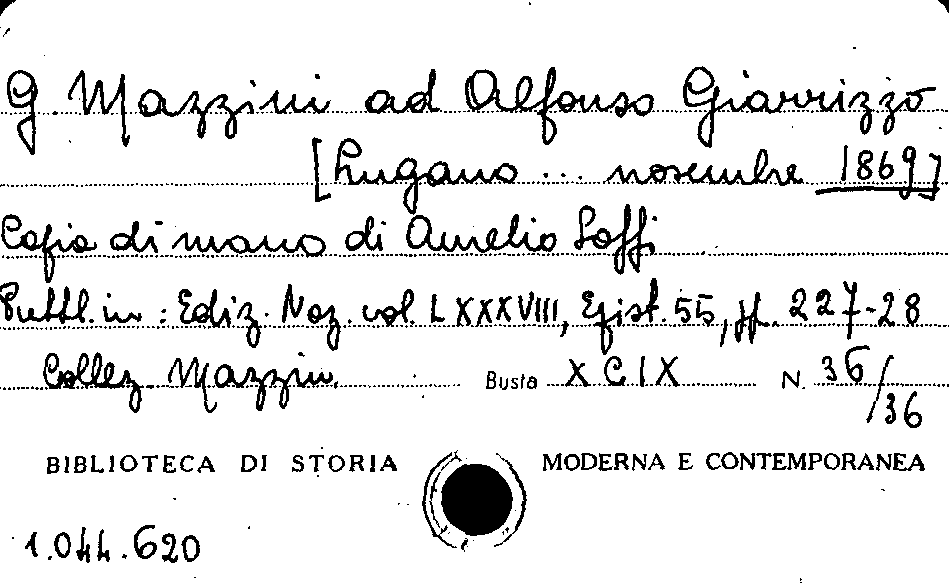 G. Mazzini ad Alfonso Giarrizzo
[Lugano ... novembre 1869]
Copia di mano di Aurelio Saffi
Pubbl. in: Ediz. Naz. vol. LXXXVIII, Epist. 55, pp. 227-28
Collez. Mazzini Busta XCIX N. 36/36
BIBLIOTECA DI STORIA MODERNA E CONTEMPORANEA
1.044.620